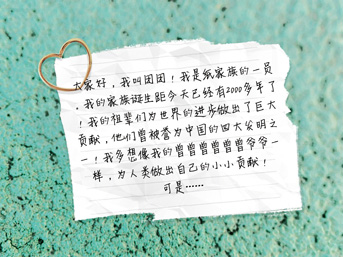 大家好，我叫团团！我是纸家族的一员
，我的家族诞生距今天已经有2000多年了
！我的祖辈们为世界的进步做出了巨大
贡献，他们曾被誉为中国的四大发明之
一！我多想像我的曾曾曾曾曾曾爷爷一
样，为人类做出自己的小小贡献！
可是……